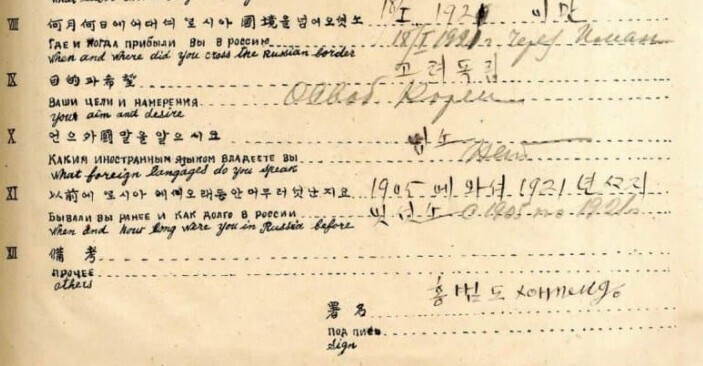 18/I 1921 이만
VIII 何月何日에어대서 로시아 國境을넘어오셧소
ГДЕ И КОГДА ПРИБЫЛИ ВЫ В РОССИЮ 18/I 1921 г. через Иман
when and where did you cross the Russian border
고려독립
IX 目的과希望
ВАШИ ЦЕЛИ И НАМЕРЕНИЯ Освоб Кореи
Your aim and desire
X 언으外國말을알으시요
КАКИМ ИНОСТРАННЫМ ЯЗЫКОМ ВЛАДЕЕТЕ ВЫ Нет
What foreign langages do you speak
XI 以前에 로시아 에오래동안머무러섯난지요 1905 에와셔 1921 년
БЫВАЛИ ВЫ РАНЕЕ И КАК ДОЛГО В РОССИИ с 1905 по 1921 г.
when and how long were you in Russia before
XII 備考
ПРОЧЕЕ
others
홍범도
署名
ПОДПИСЬ
Sign